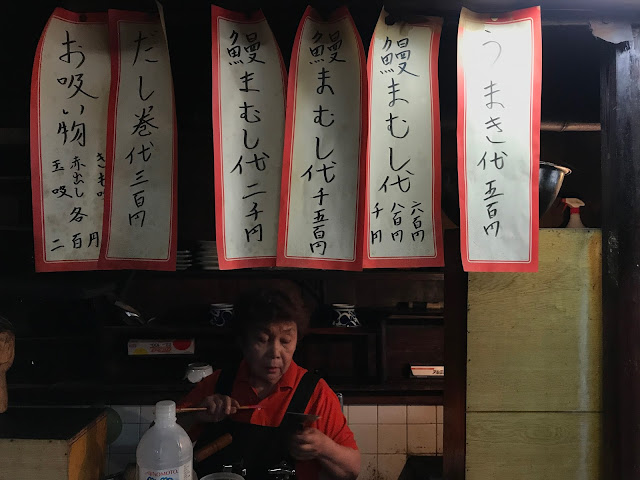 うまき代 五百円
鰻まむし代
六百円
八百円
千円
鰻まむし代 千五百円
鰻まむし代 二千円
だし巻代 三百円
お吸い物
きも吸
赤出し 各
玉吸
二百円